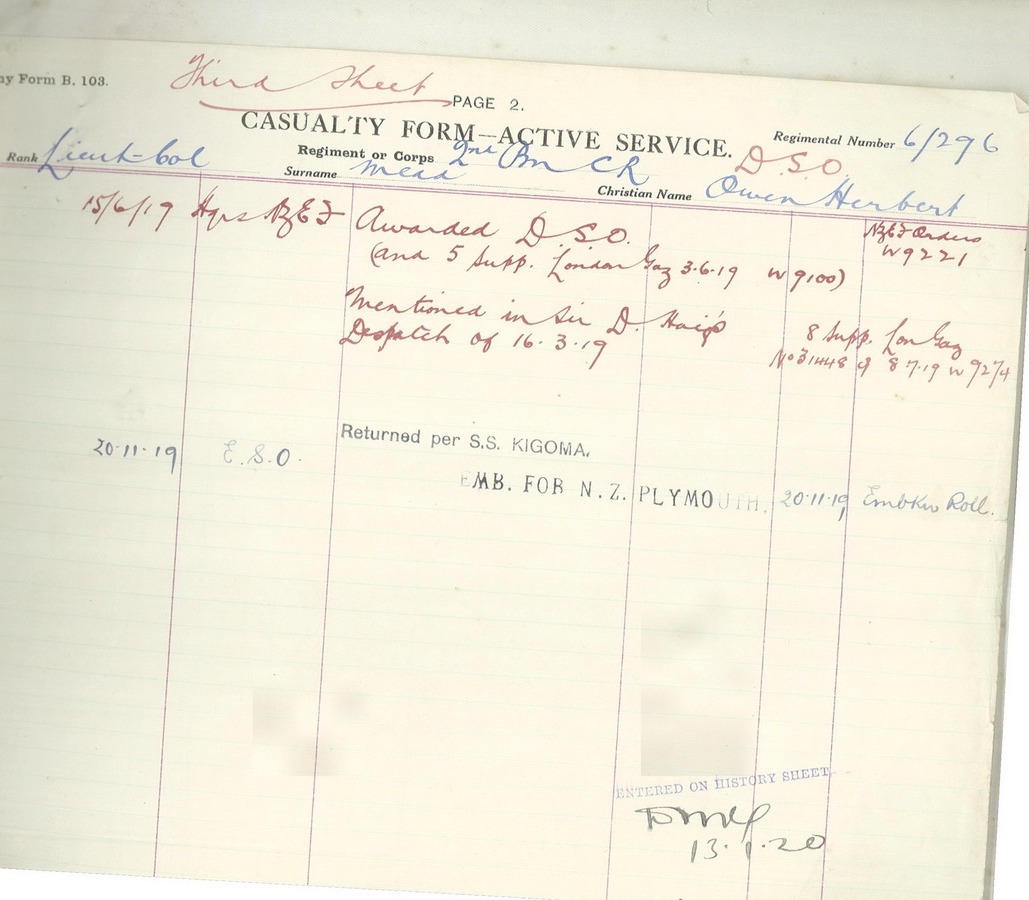 ny Form B. 103.
Third Sheet
PAGE 2.
CASUALTY FORM—ACTIVE SERVICE.
Regimental Number 6/296
D.S.O.
Rank Lieut-Col
Regiment or Corps 2nd Bn CR
Surname Mead
Christian Name Owen Herbert
15/6/19 Hqrs NZEF Awarded D.S.O. NZEF Orders
(and 5 Supp. London Gaz 3.6.19 W 9100) W9221
Mentioned in Sir D. Haig's
Despatch of 16.3.19 8 Supp. Lon Gaz
No 31448 of 8.7.19 W 9274
20.11.19 E.S.O. Returned per S.S. KIGOMA.
EMB. FOR N.Z. PLYMOUTH. 20.11.19 Embkn Roll.
ENTERED ON HISTORY SHEET
13.1.20